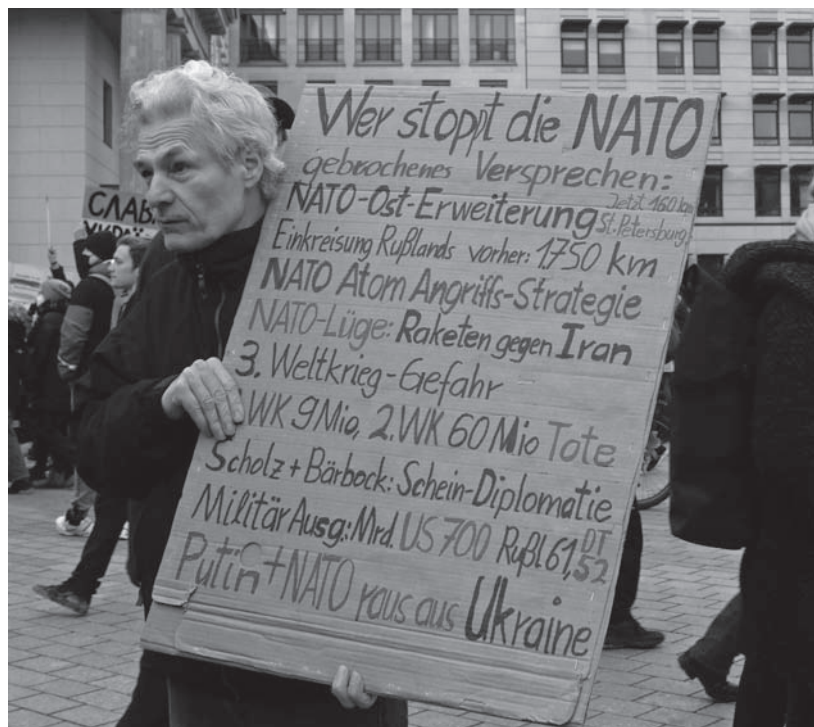 Wer stoppt die NATO
gebrochenes Versprechen:
NATO-Ost-Erweiterung Jetzt 160 km
St. Petersburg
Einkreisung Rußlands vorher: 1.750 km
NATO Atom Angriffs-Strategie
NATO-Lüge: Raketen gegen Iran
3. Weltkrieg-Gefahr
WK 9 Mio, 2. WK 60 Mio Tote
Scholz + Bärbock: Schein-Diplomatie
Militär Ausg.: Mrd. US 700 Rußl 61, DT 52
Putin + NATO raus aus Ukraine
СЛАВА